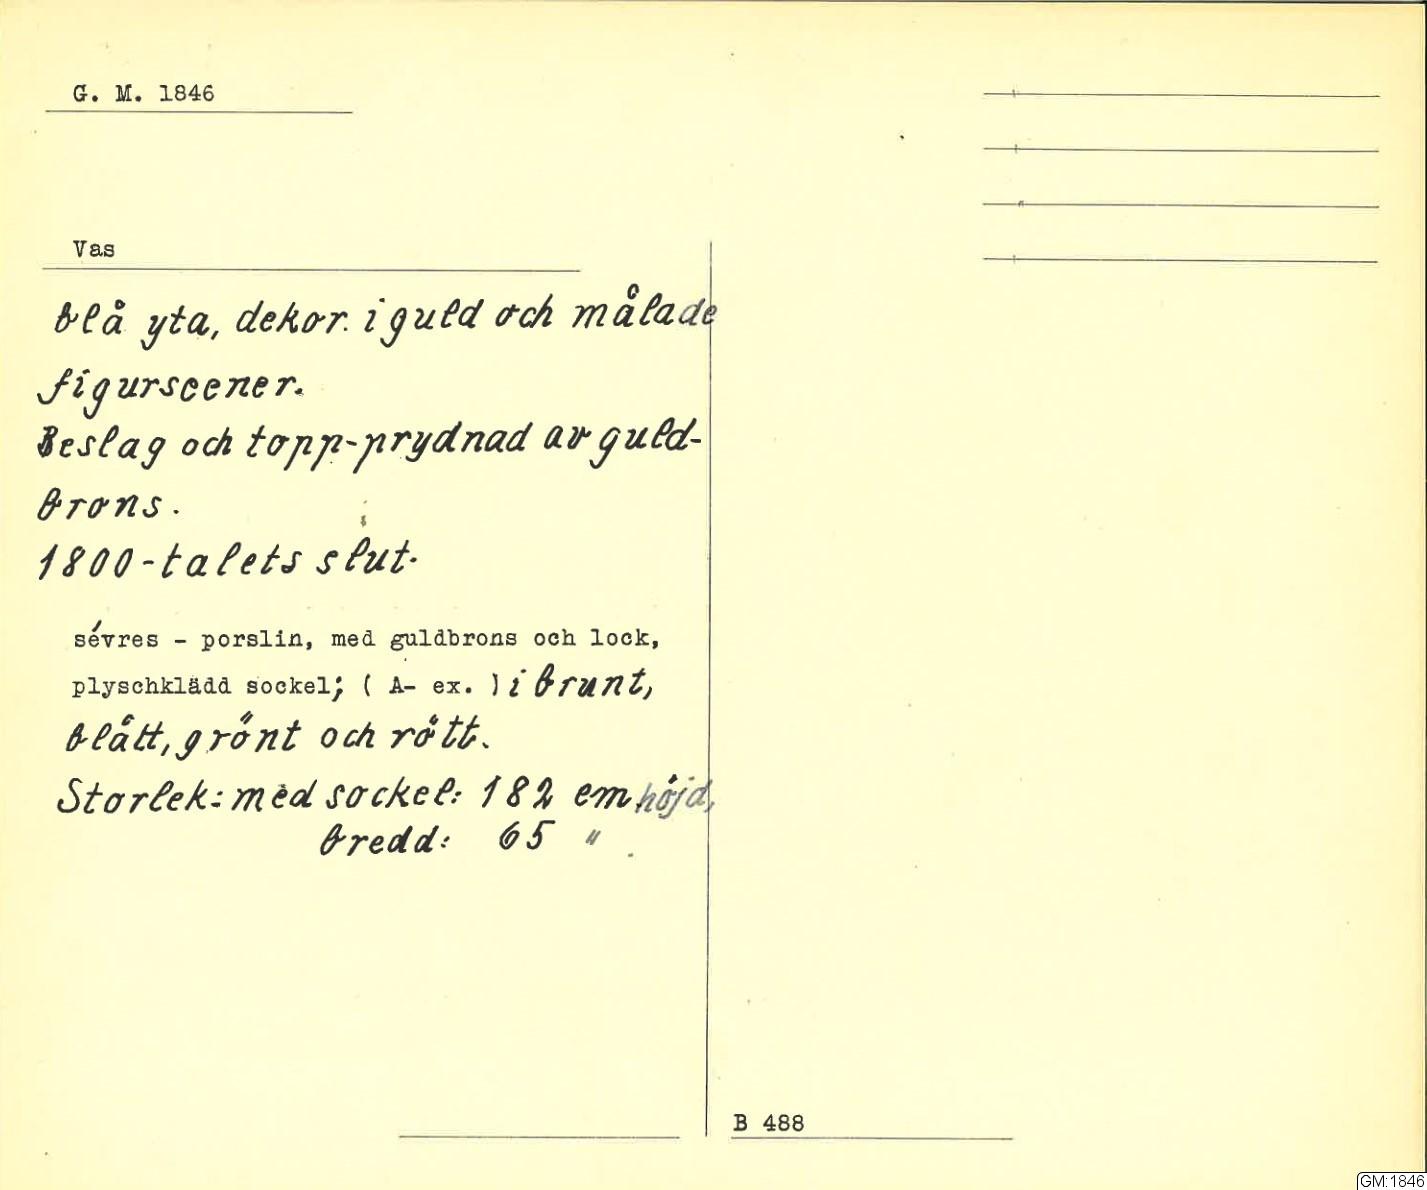 G. M. 1846
Vas
blå yta, dekor. i guld och målade
figurscener.
Beslag och topp-prydnad av guld-
brons.
1800-talets slut.
sévres - porslin, med guldbrons och lock,
plyschklädd sockel; ( A- ex. ) i brunt,
blått, grönt och rött.
Storlek: med sockel: 182 cm höjd,
bredd: 65 "
B 488
GM:1846